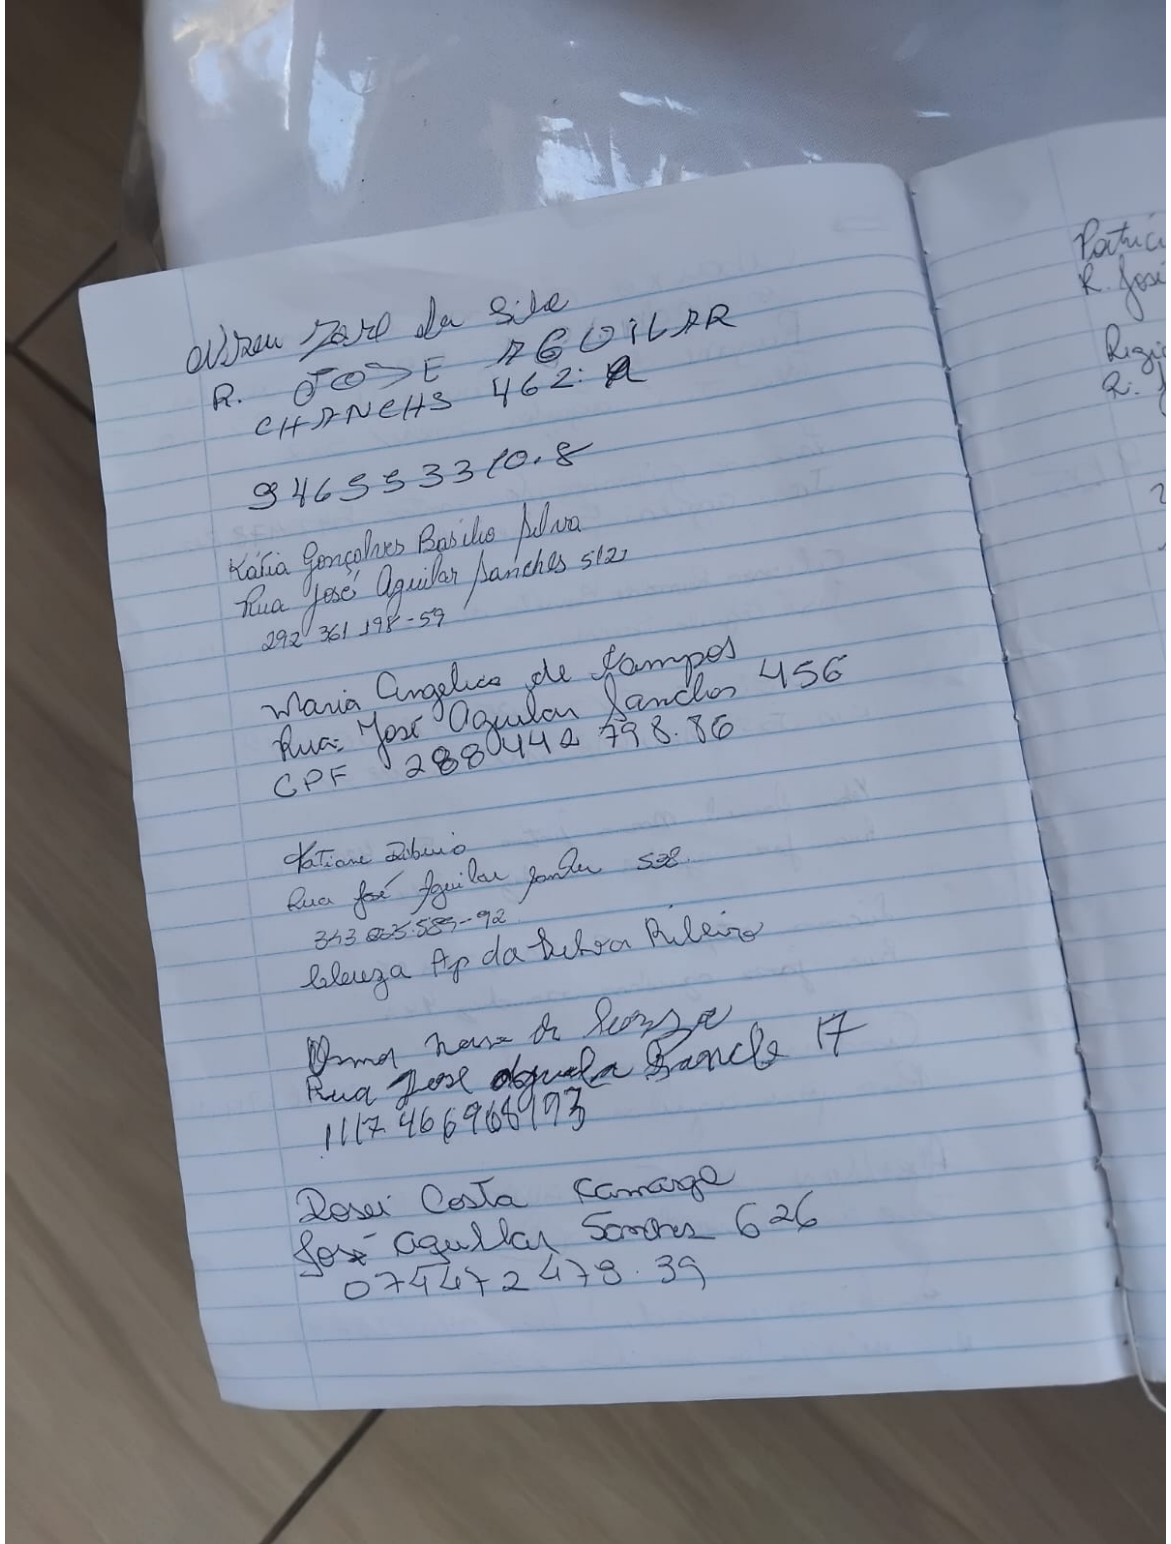 José da Silva
R. JOSE AGUILAR
CHANCHS 462. A
946553310.8
Kátia Gonçalves Basilio Silva
Rua José Aguilar Sanches 512
292 361 198-59
Maria Angelica de Campos
Rua: José Aguilar Sanches 456
CPF 288 442 798.86
Tatiane Ribeiro
Rua José Aguilar Sanches
Cleuza Ap da Silva Ribeiro
de Souza
Rua Jose Sanche 17
Rosei Costa Camargo
José Aguillar Sanches 626
074472478.39
Patríci
R. José
Regi
R. J